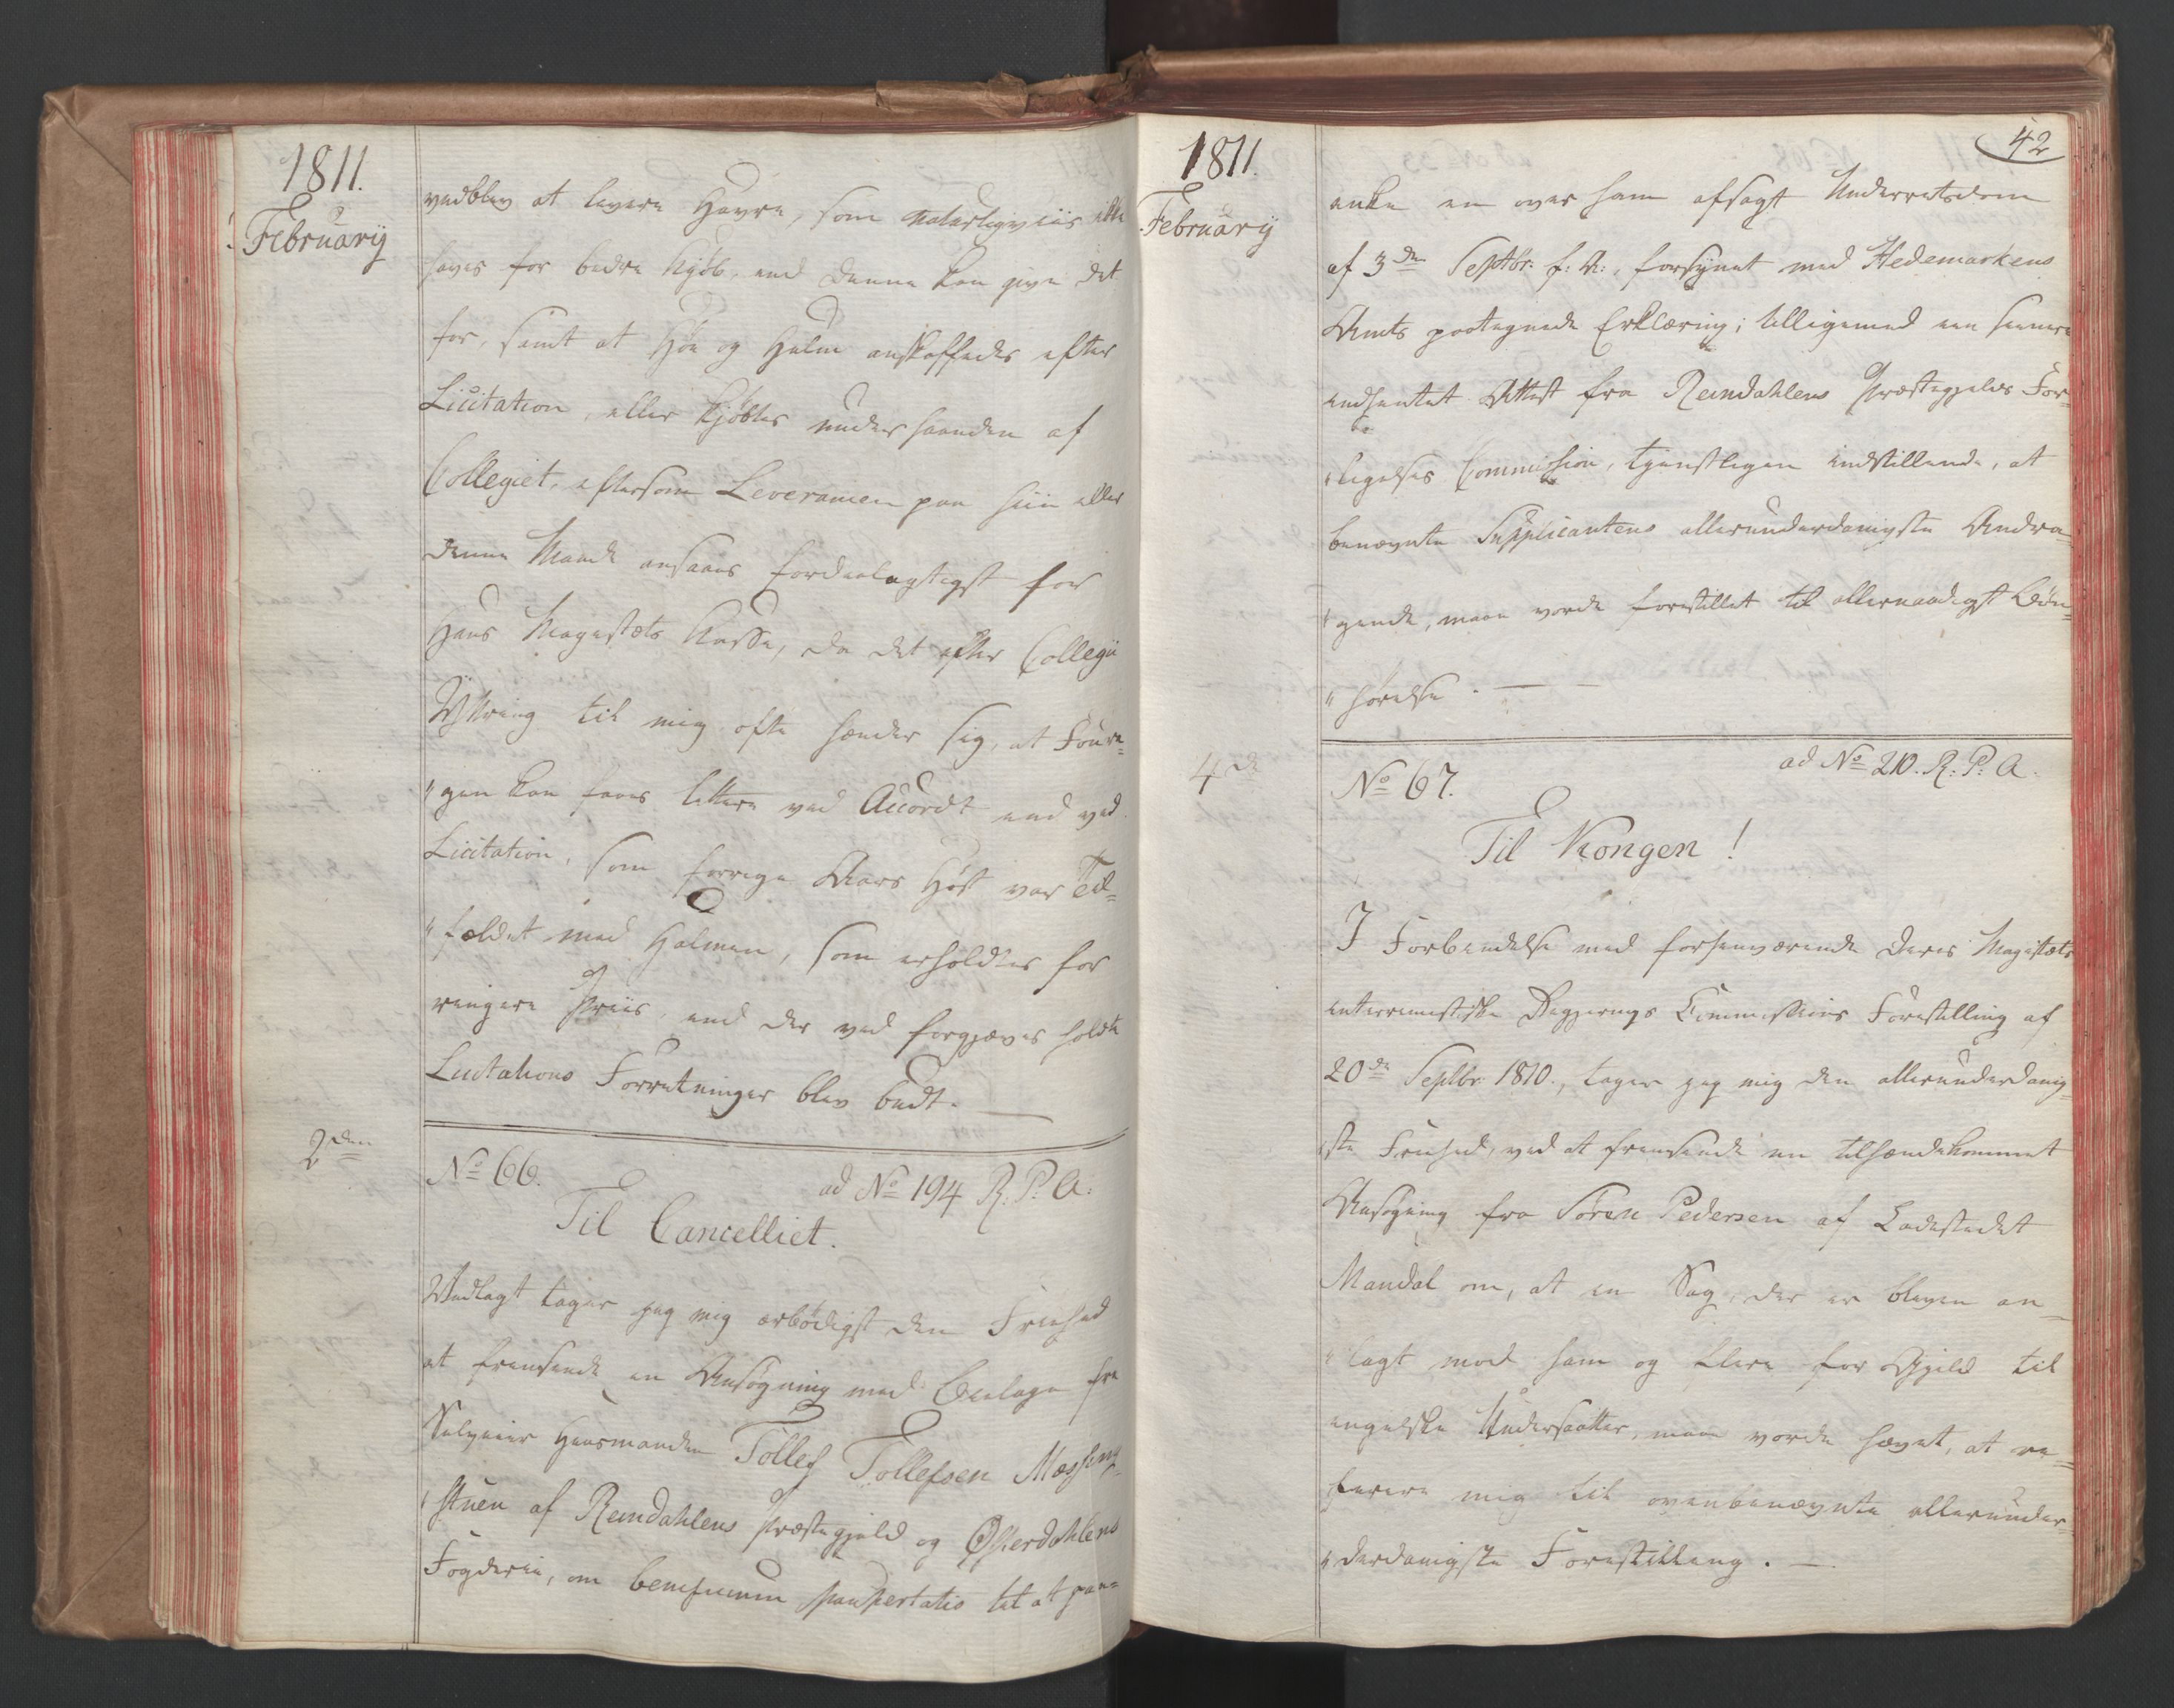 1811.
Februarÿ
vedblev at levere Havre, som naturligviis ikke
haves for bedre Kjøb, end denne kan give det
for, samt at Høe og Halm anskaffedes efter
Licitation, eller kjøbtes under haanden af
Collegiet, eftersom Leverancen paa hiin eller
denne Maade ansaaes fordeelagtigst for
Hans Majestæts Kasse, da det efter Collegii
Yttring til mig ofte hænder sig, at Foura=
"gen kan faaes lettere ved Accordt end ved
Licitation, som forrige Aars Høst var Til=
"fældet med Halmen, som erholdtes for
ringere Priis, end der ved forgjæves holdte
Licitations Forretninger blev budt. —
2den
No 66.
ad No 194 R: P: A:
Til Cancelliet.
Vedlagt tager jeg mig ærbødigst den Friehed
at fremsende en Ansøgning med Bielage fra
Selveier Huusmanden Tollef Tollefsen Messeng=
"stuen af Reindahlens Præstegjeld og Østerdahlens
Fogderie, om beneficium paupertatis til at paa=
1811.
Februarÿ
42
anke en over ham afsagt Underretsdom
af 3die Septbr. f: A:, forsynet med Hedemarkens
Amts paategnede Erklæring; tilligemed een senere
indhentet Attest fra Reindahlens Præstegjelds For=
"ligelses Commission, tjenstligen indstillende, at
benævnte Supplicantens allerunderdanigste Andra=
"gende, maae vorde forestillet til allernaadigst Bøn=
"hørelse. — —
4de
No 67.
ad No 210. R: P: A.
Til Kongen!
I Forbindelse med forhenværende Deres Majestæts
interimistiske Regjerings Commissions Forestilling af
20de Septbr. 1810., tager jeg mig den allerunderdanig=
"ste Friehed, ved at fremsende en tilhændekommet
Ansøgning fra Søren Pedersen af Ladestedet
Mandal om, at en Sag, der er bleven an=
"lagt mod ham og flere for Gjeld til
engelske Undersaatter, maae vorde hævet, at re=
ferere mig til ovenbenævnte allerunder=
"derdanigste Forestilling. —